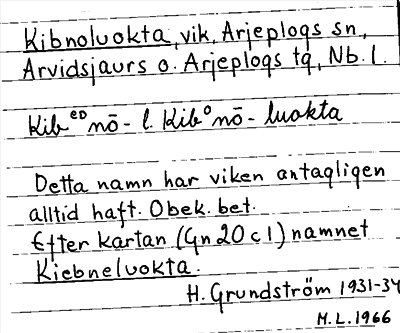 Kibnoluokta, vik, Arjeplogs sn,
Arvidsjaurs o. Arjeplogs tg, Nb. l.
Kibᵉᴰnō- l. Kibᵒnō- luokta
Detta namn har viken antagligen
alltid haft. Obek. bet.
Efter kartan (Gn 20 c 1) namnet
Kiebneluokta.
H. Grundström 1931-34
M.L. 1966